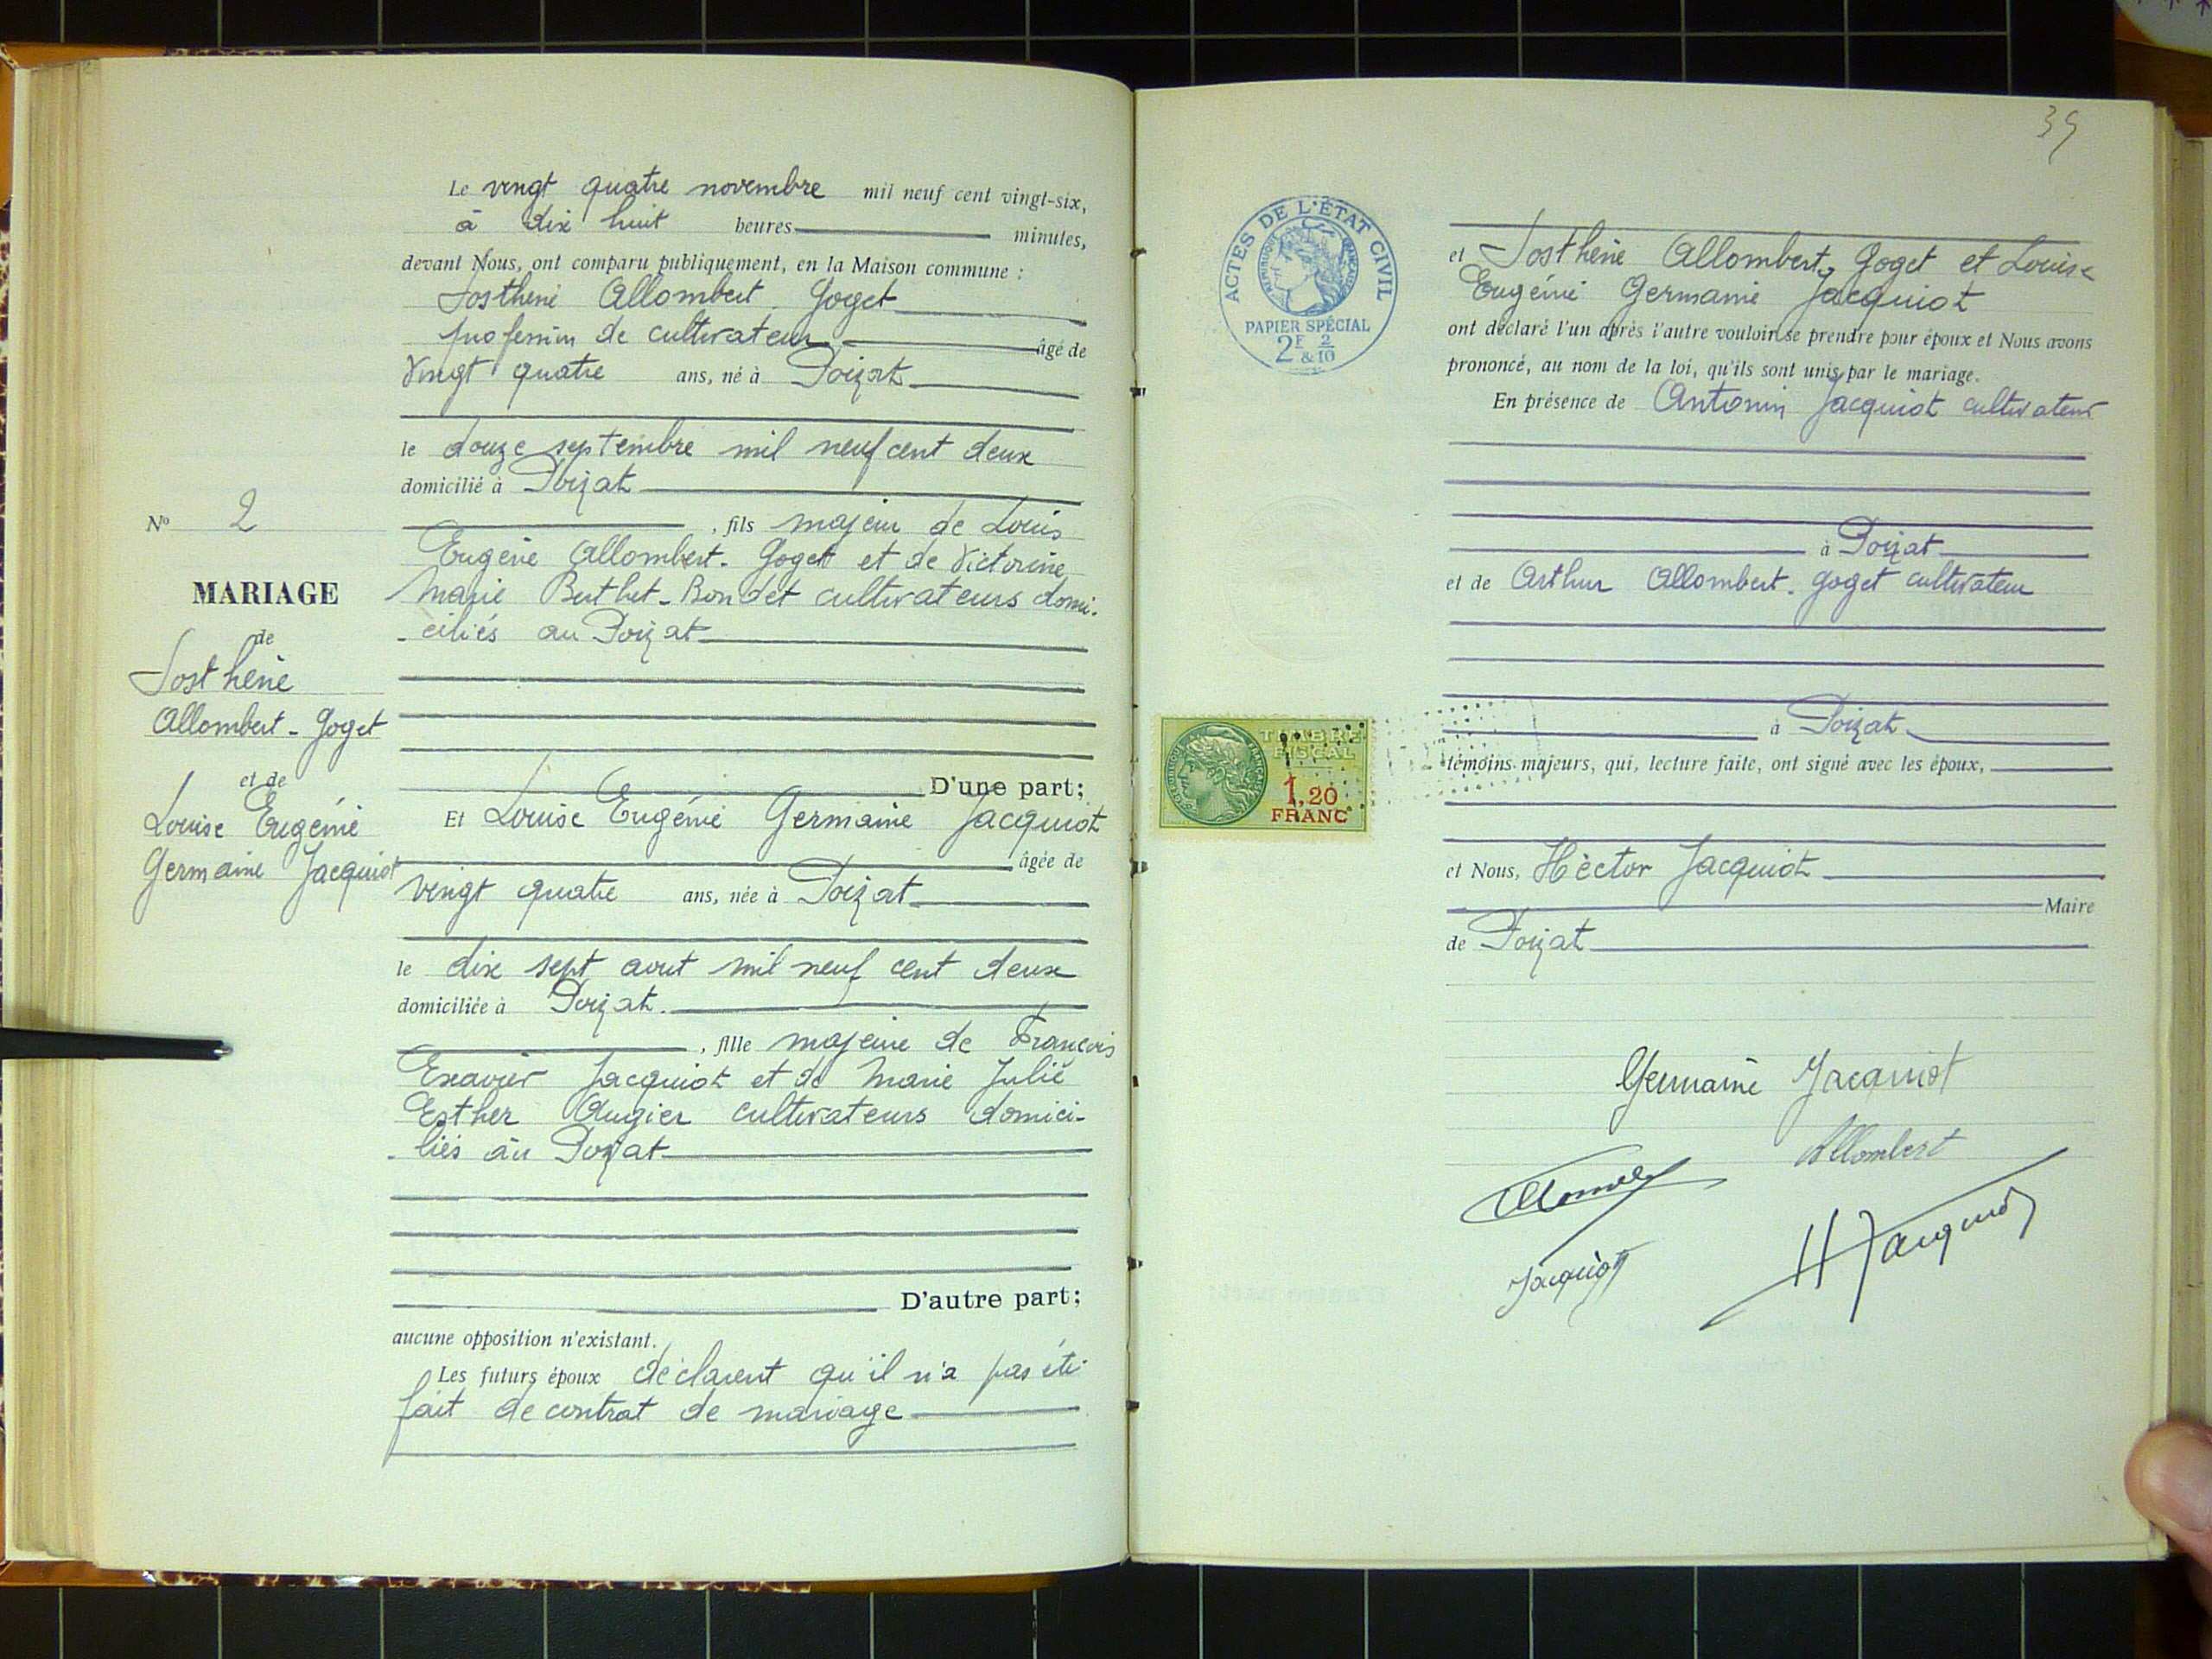 Le vingt quatre novembre mil neuf cent vingt-six,
à dix huit heures minutes,
devant Nous, ont comparu publiquement, en la Maison commune :
Sosthène Allombert Goget
profession de cultivateur âgé de
vingt quatre ans, né à Poizat
le douze septembre mil neuf cent deux
domicilié à Poizat
, fils majeur de Louis
Eugène Allombert-Goget et de Victorine
Marie Berthet-Bondet cultivateurs domi-
-ciliés au Poizat
D'une part;
Et Louise Eugénie Germaine Jacquiot
âgée de
vingt quatre ans, née à Poizat
le dix sept aout mil neuf cent deux
domiciliée à Poizat.
, fille majeure de François
Exavier Jacquiot et de Marie Julie
Esther Augier cultivateurs domici-
-liés au Poizat
D'autre part;
aucune opposition n'existant.
Les futurs époux déclarent qu'il n'a pas été
fait de contrat de mariage
No 2
MARIAGE
de
Sosthène
Allombert-Goget
et de
Louise Eugénie
Germaine Jacquiot
39
ACTES DE L'ÉTAT CIVIL
RÉPUBLIQUE FRANÇAISE
PAPIER SPÉCIAL
2F 2
& 10
TIMBRE
FISCAL
1,20
FRANC
et Sosthène Allombert-Goget et Louise
Eugénie Germaine Jacquiot
ont déclaré l'un après l'autre vouloir se prendre pour époux et Nous avons
prononcé, au nom de la loi, qu'ils sont unis par le mariage.
En présence de Antonin Jacquiot cultivateur
à Poizat
et de Arthur Allombert-Goget cultivateur
à Poizat
témoins majeurs, qui, lecture faite, ont signé avec les époux,
et Nous, Hèctor Jacquiot
Maire
de Poizat
Germaine Jacquiot
Allombert
Jacquiot
H Jacquiot